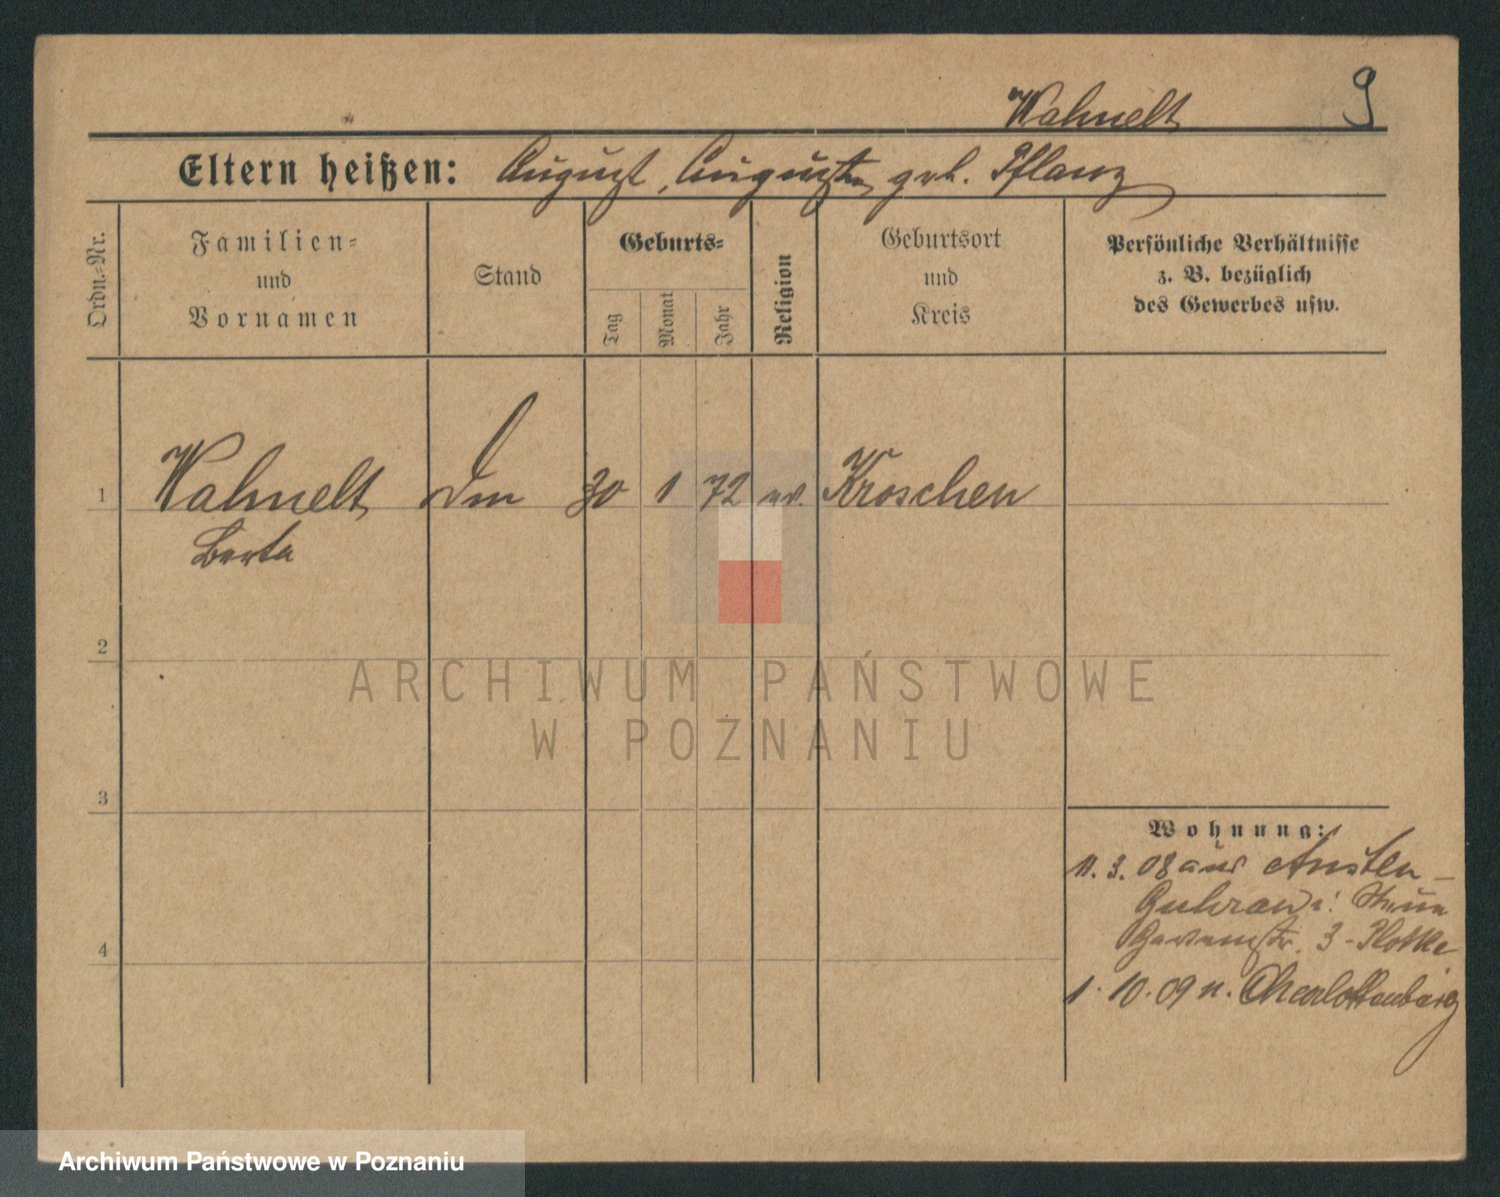 Wahnelt 9
Eltern heißen: August, Auguste geb. Pflanz
Ordn.-Nr.
Familien-
und
Vornamen
Stand
Geburts-
Tag
Monat
Jahr
Religion
Geburtsort
und
Kreis
Persönliche Verhältnisse
z. B. bezüglich
des Gewerbes usw.
1 Wahnelt 30 1 72 ev. Kroschen
Berta
2
3
4
Wohnung:
11. 3. 08 aus
Guhrau i.
3 -
1. 10. 09 n. Charlottenburg
ARCHIWUM PAŃSTWOWE
W POZNANIU
Archiwum Państwowe w Poznaniu